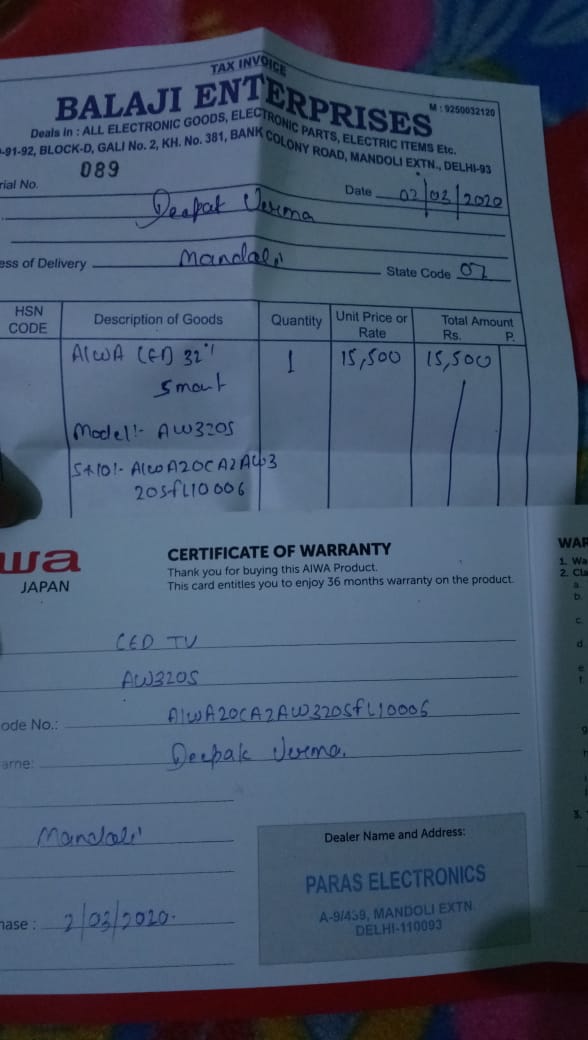 TAX INVOICE
BALAJI ENTERPRISES
M : 9250032120
Deals in : ALL ELECTRONIC GOODS, ELECTRONIC PARTS, ELECTRIC ITEMS Etc.
-91-92, BLOCK-D, GALI No. 2, KH. No. 381, BANK COLONY ROAD, MANDOLI EXTN., DELHI-93
rial No. 089
Date 02/03/2020
Deepak Verma
ess of Delivery Mandoli
State Code 07
HSN CODE Description of Goods Quantity Unit Price or Rate Total Amount Rs. P.
AIWA LED 32" 1 15,500 15,500
Smart
Model:- AW320S
AIWA20CA2AW3
20SFL10006
wa
JAPAN
CERTIFICATE OF WARRANTY
Thank you for buying this AIWA Product.
This card entitles you to enjoy 36 months warranty on the product.
LED TV
AW320S
ode No.: AIWA20CA2AW320SFL10006
ame: Deepak Verma.
Mandoli
hase : 2/03/2020.
Dealer Name and Address:
PARAS ELECTRONICS
A-9/439, MANDOLI EXTN.
DELHI-110093
WAR
1. Wa
2. Cla
a.
b.
c.
d.
e.
f.
g.
h
i
3.